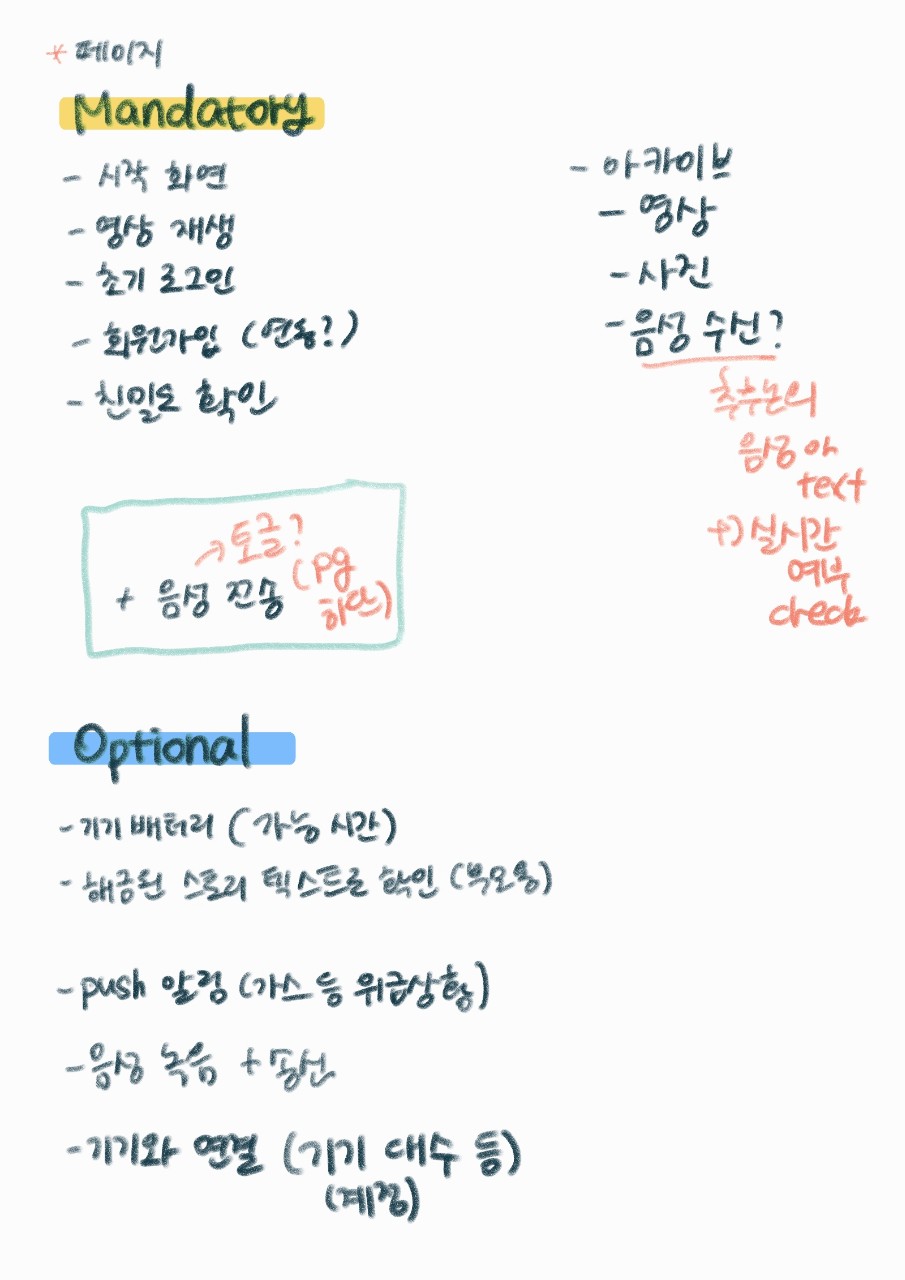 * 페이지
Mandatory
- 시작 화면
- 영상 재생
- 초기 로그인
- 회원가입 (연동?)
- 친밀도 확인
- 아카이브
- 영상
- 사진
- 음성 수신?
추후논의
음성 or
text
+) 실시간
여부
check
→ 토글?
+ 음성 전송 (pg
하단)
Optional
- 기기 배터리 (가능 시간)
- 해금된 스토리 텍스트로 확인 (부모용)
- push 알림 (가스 등 위급상황)
- 음성 녹음 + 송신
- 기기와 연결 (기기 대수 등)
(계정)